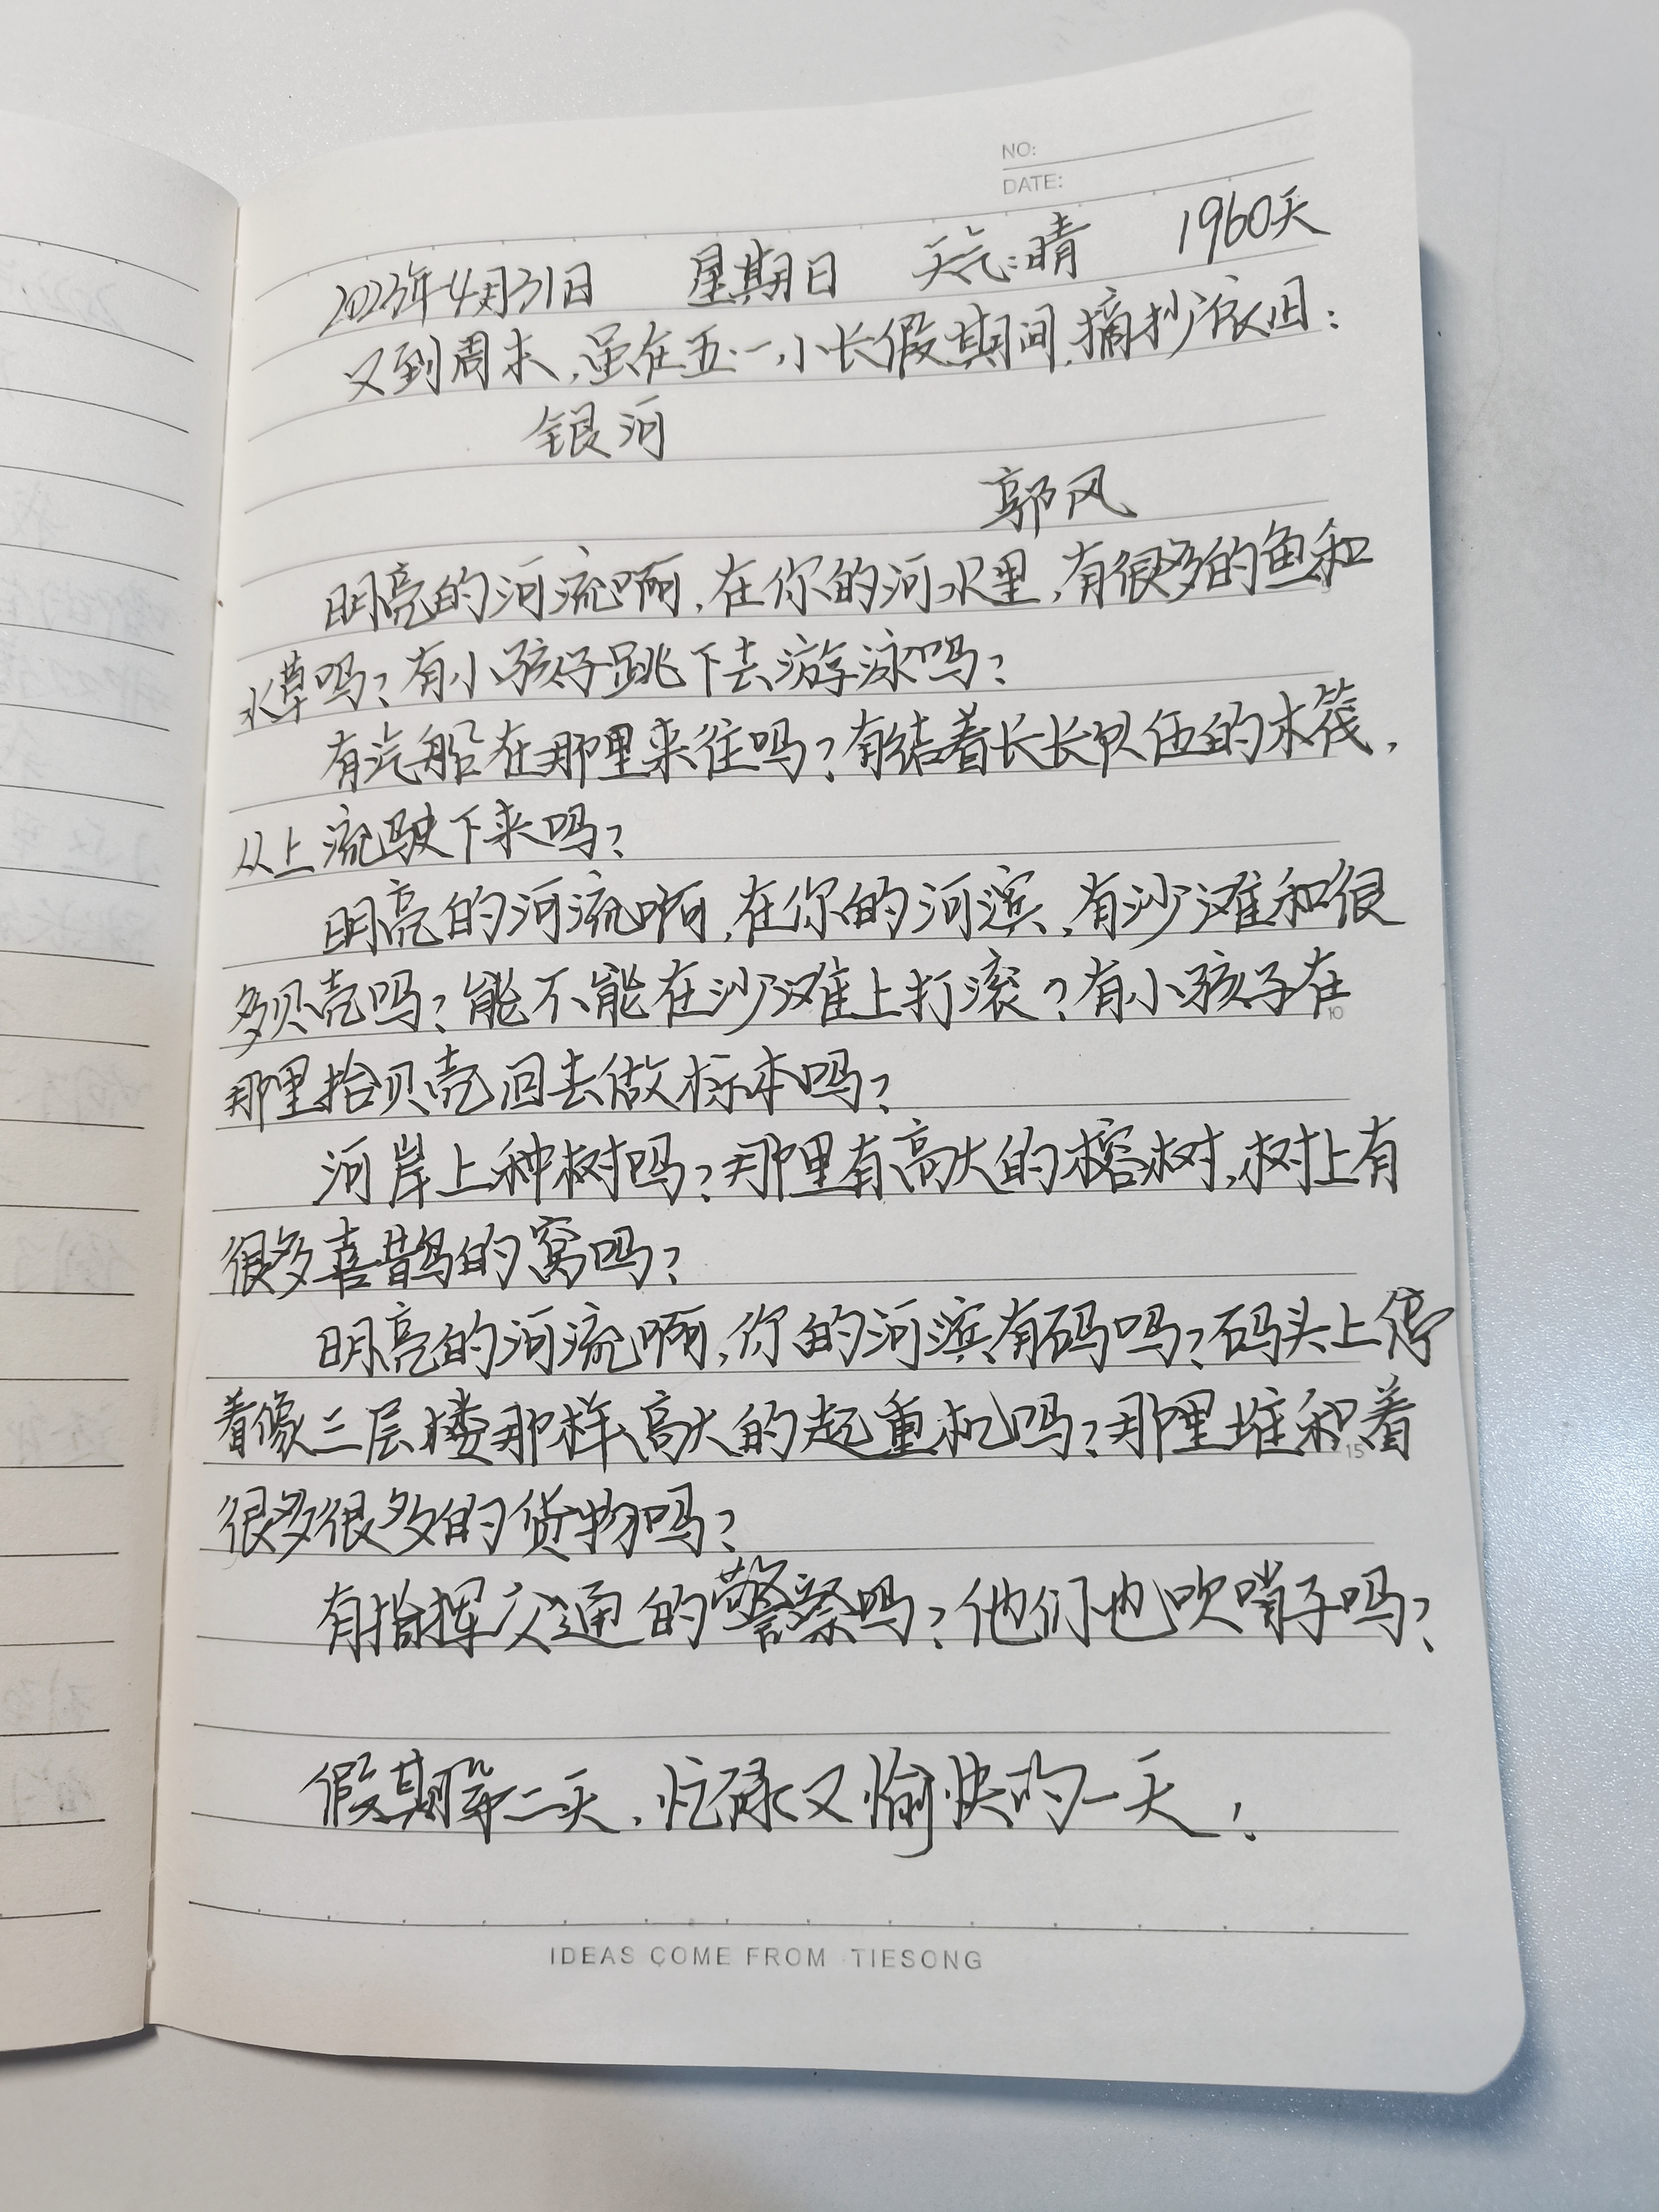 NO:
DATE:
2023年4月31日 星期日 天气:晴 1960天
又到周末,虽在五·一小长假期间,摘抄依旧:
银河
郭风
明亮的河流啊,在你的河水里,有很多的鱼和
水草吗?有小孩子跳下去游泳吗?
有汽船在那里来往吗?有结着长长队伍的木筏,
从上流驶下来吗?
明亮的河流啊,在你的河滨,有沙滩和很
多贝壳吗?能不能在沙滩上打滚?有小孩子在
那里拾贝壳回去做标本吗?
河岸上种树吗?那里有高大的榕树,树上有
很多喜鹊的窝吗?
明亮的河流啊,你的河滨有码吗?码头上停
着像三层楼那样高大的起重机吗?那里堆积着
很多很多的货物吗?
有指挥交通的警察吗?他们也吹哨子吗?
假期第二天,忙碌又愉快的一天!
10
15
IDEAS COME FROM TIESONG